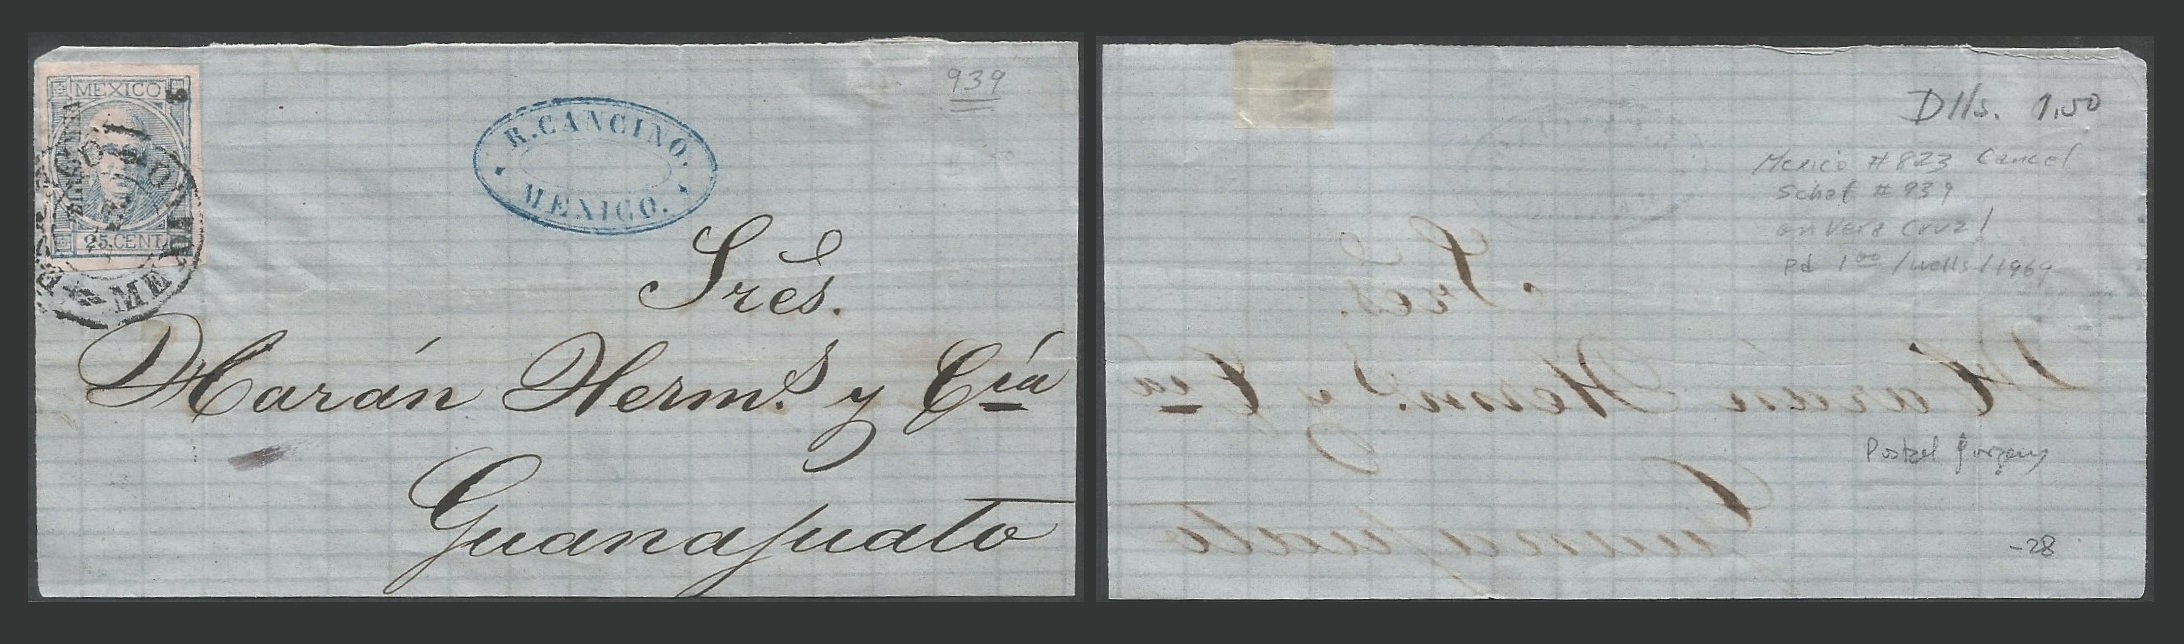 MEXICO
25.CENT
R. CANCINO.
MEXICO.
939
Sres.
Marán Herm.s y Cía
Guanajuato
Dlls. 1.50
Mexico #823 Cancel
Schat # 939
on Vera Cruz!
pd 1 00 /wells/1969
Postal
-28